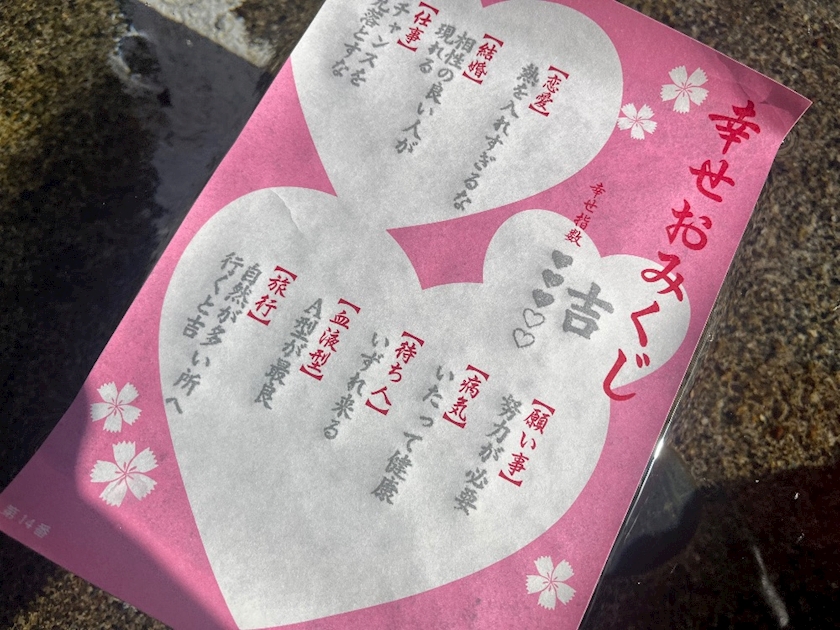 幸せおみくじ
幸せ指数
吉
♥♥♥♡♡
【恋愛】
熱を入れすぎるな
【結婚】
相性の良い人が
現れる
【仕事】
チャンスを
見落とすな
【願い事】
努力が必要
【病気】
いたって健康
【待ち人】
いずれ来る
【血液型】
A型が最良
【旅行】
自然が多い所へ
行くと吉
第14番